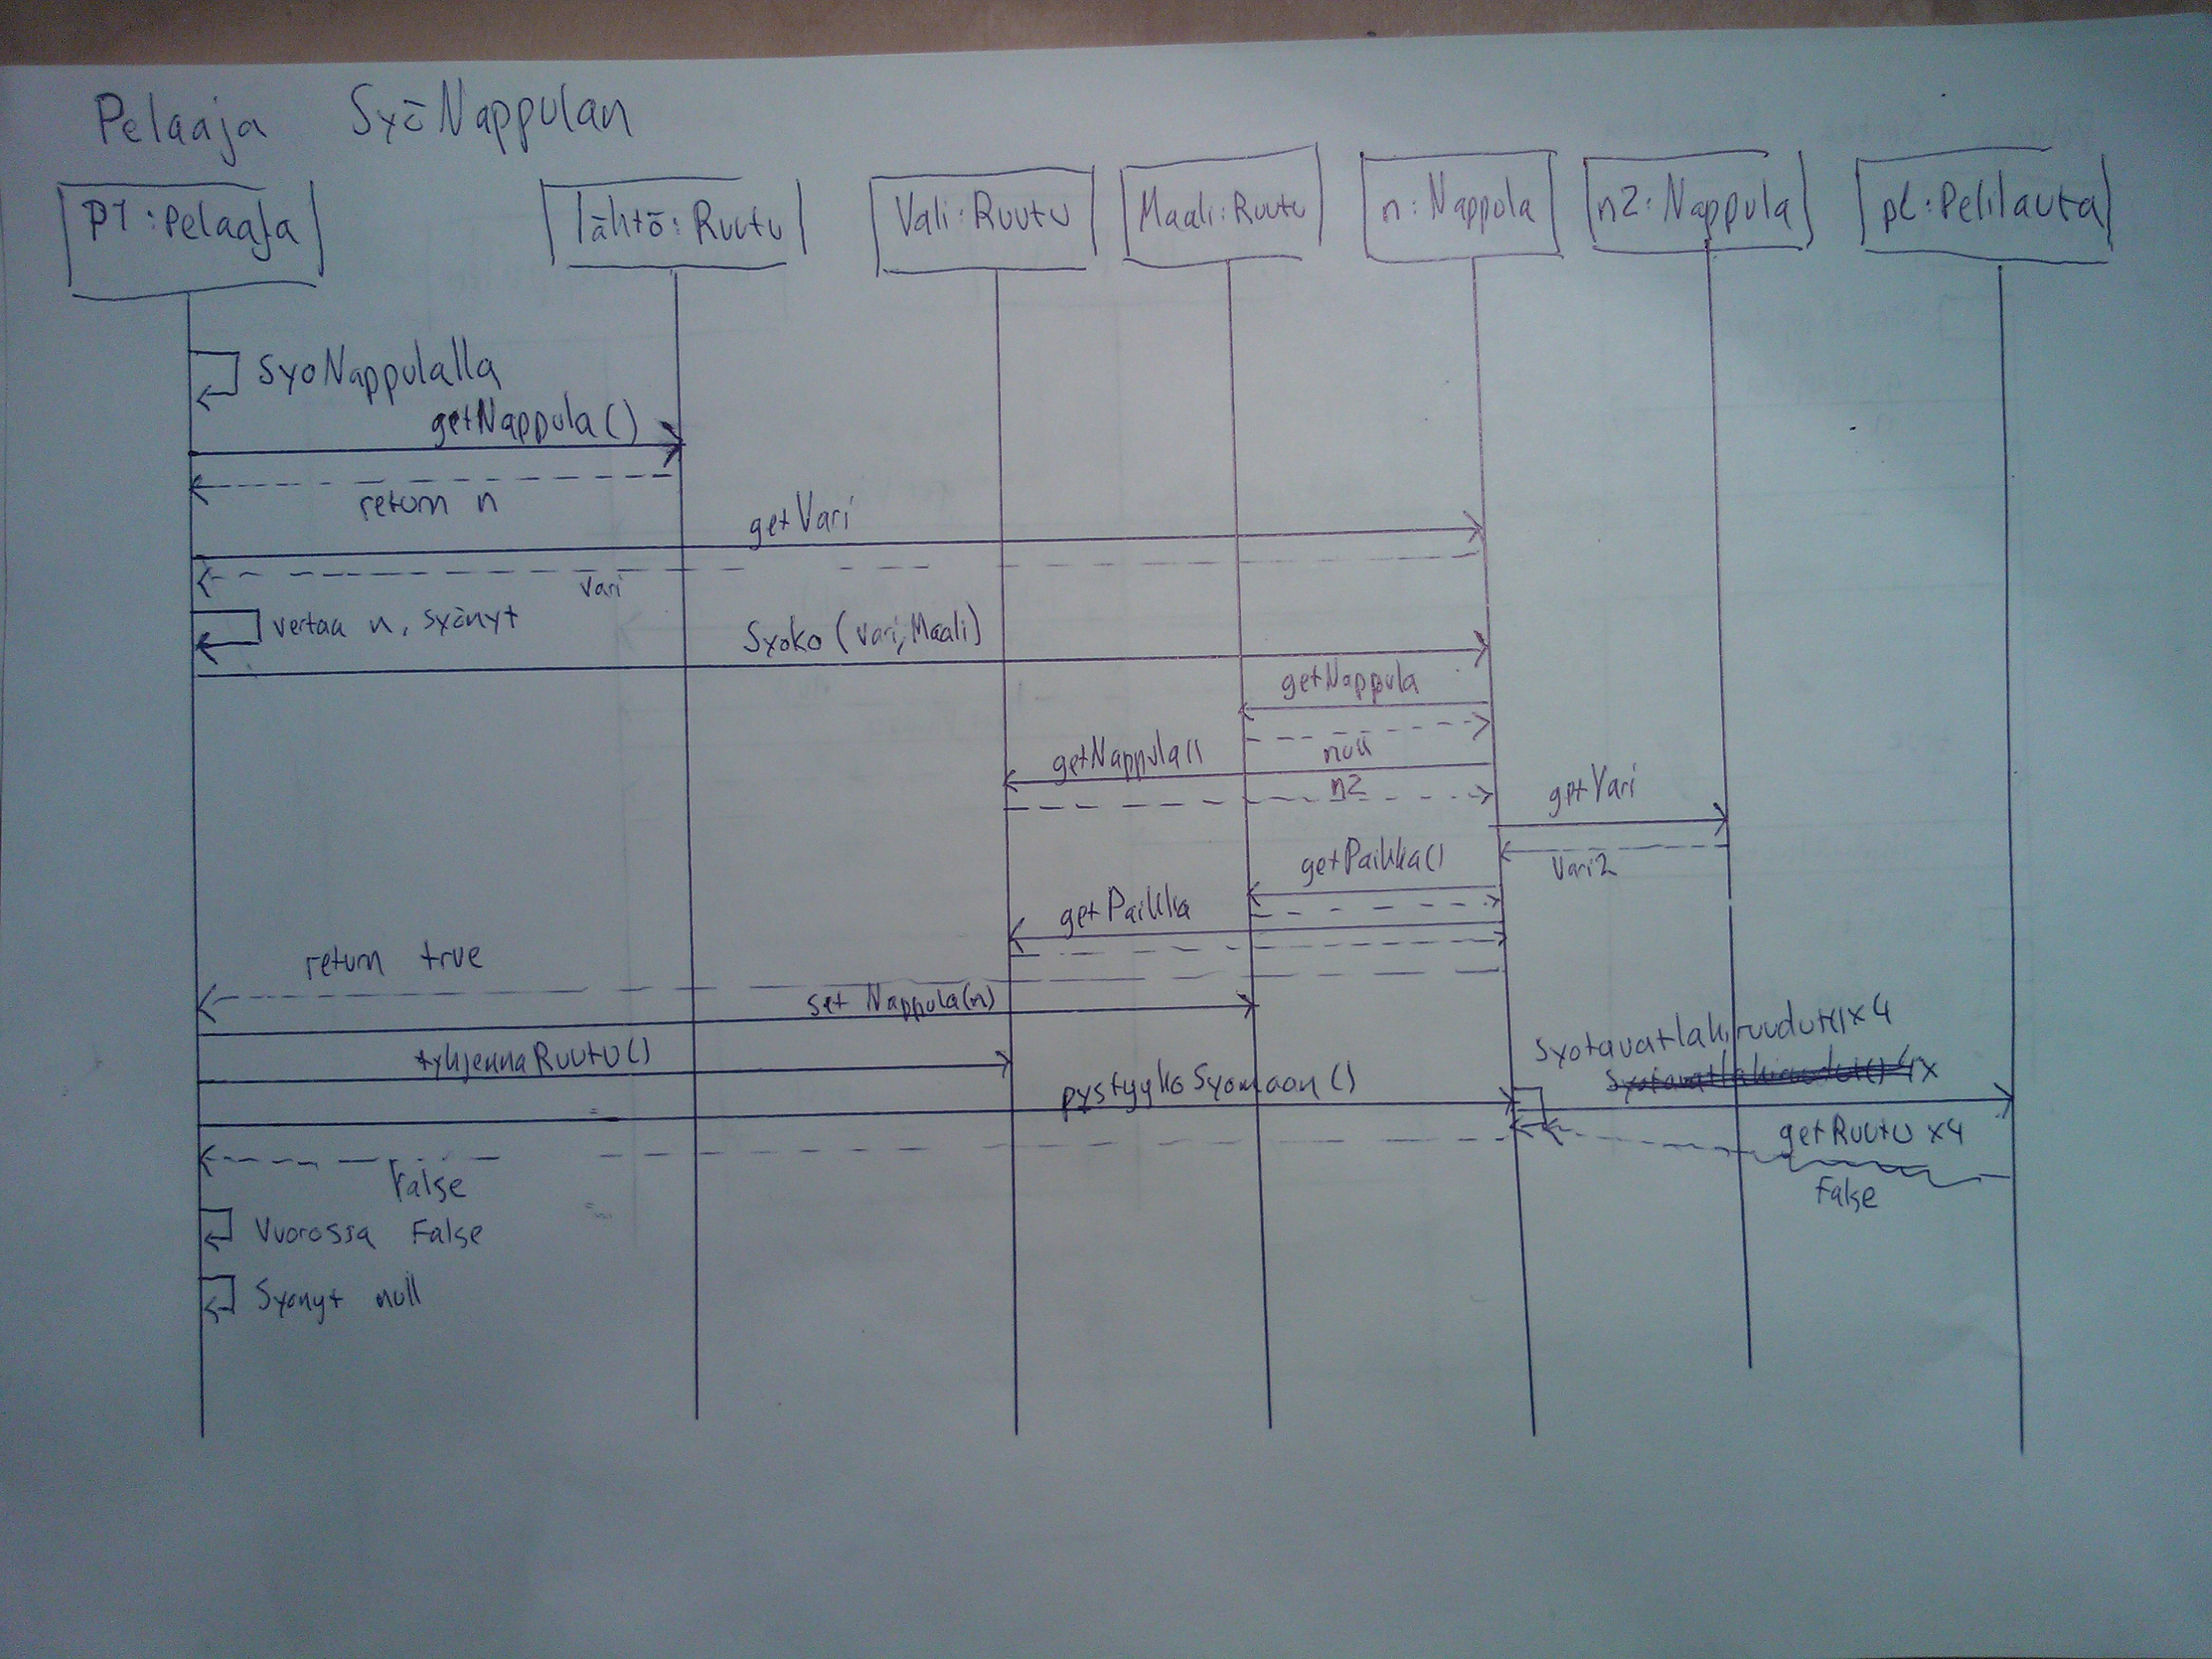 Pelaaja SyöNappulan
P1:Pelaaja
lähtö:Ruutu
Vali:Ruutu
Maali:Ruutu
n:Nappula
n2:Nappula
pl:Pelilauta
SyoNappulalla
getNappula()
return n
getVari
vari
vertaa n, syönyt
Syoko (vari, Maali)
getNappula
null
getNappula()
n2
getVari
Vari2
getPaikka()
getPaikka
return true
set Nappula(n)
tyhjennaRuutu()
Syotavatlahiruudut()x4
Syotavatlahiruudut() 4x
pystyykoSyomaan()
getRuutu x4
False
False
Vuorossa False
Syonyt null